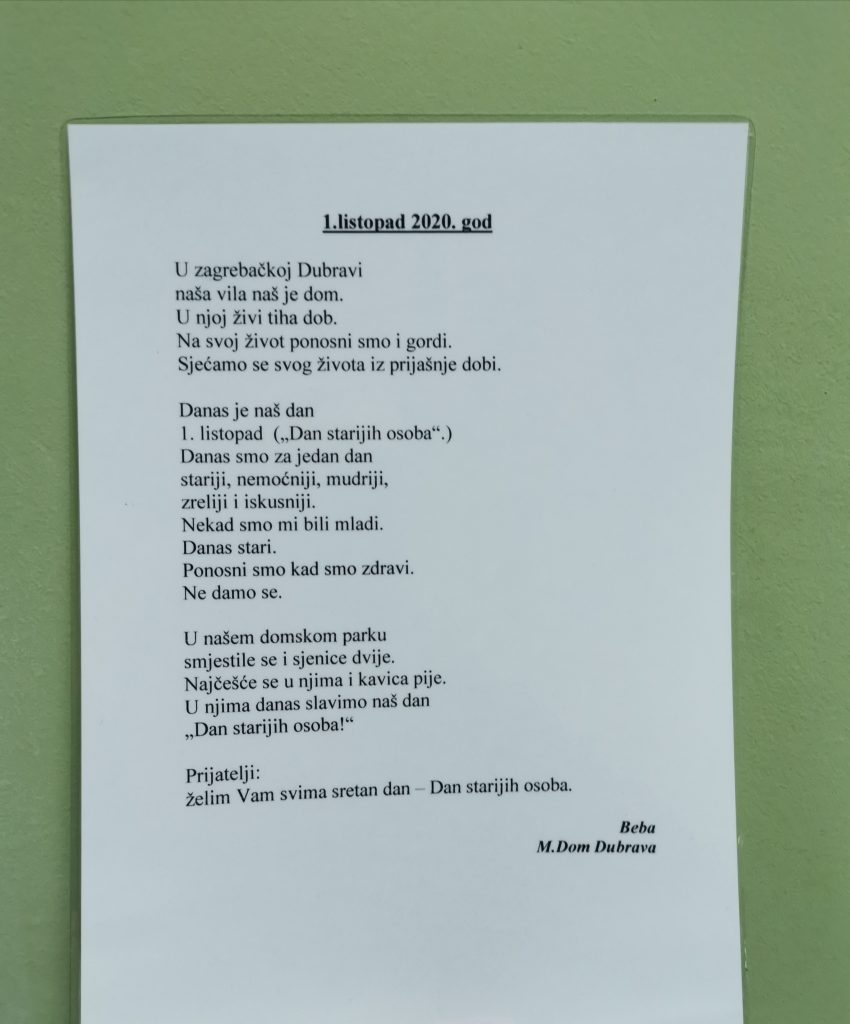 1.listopad 2020. god
U zagrebačkoj Dubravi
naša vila naš je dom.
U njoj živi tiha dob.
Na svoj život ponosni smo i gordi.
Sjećamo se svog života iz prijašnje dobi.
Danas je naš dan
1. listopad  („Dan starijih osoba“.)
Danas smo za jedan dan
stariji, nemoćniji, mudriji,
zreliji i iskusniji.
Nekad smo mi bili mladi.
Danas stari.
Ponosni smo kad smo zdravi.
Ne damo se.
U našem domskom parku
smjestile se i sjenice dvije.
Najčešće se u njima i kavica pije.
U njima danas slavimo naš dan
„Dan starijih osoba!“
Prijatelji:
želim Vam svima sretan dan – Dan starijih osoba.
Beba
M.Dom Dubrava